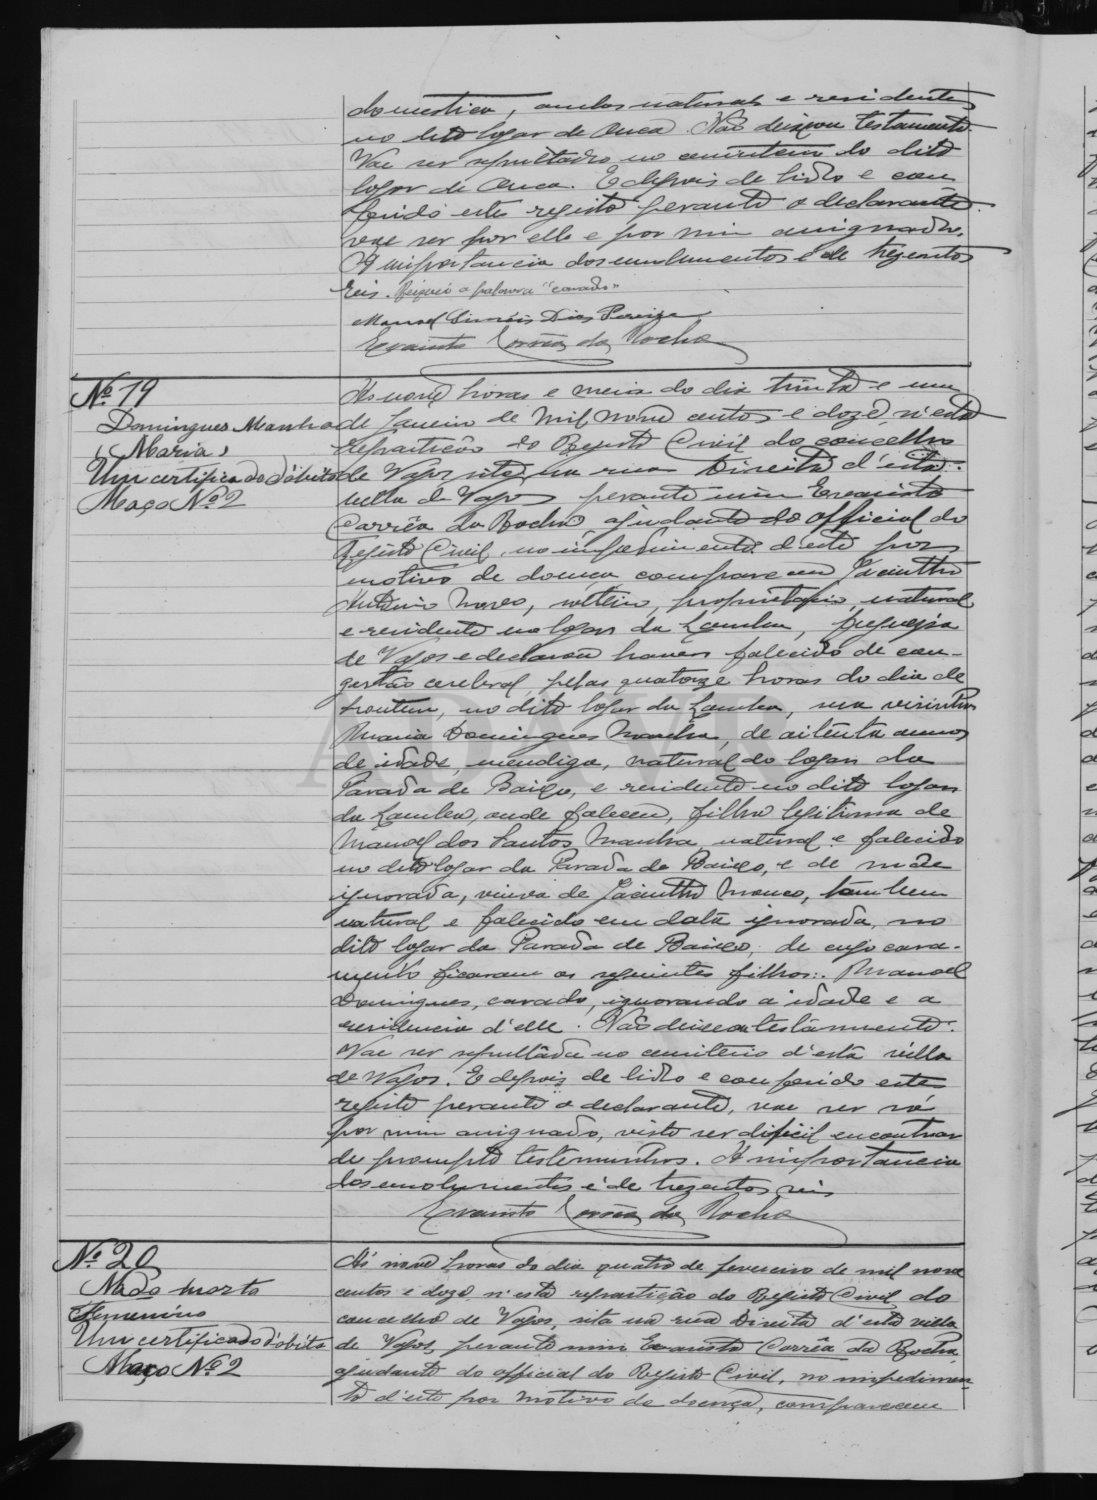 domestica, ambos naturaes e residentes
no dito logar de Ouca. Não deixou testamento.
Vae ser sepultado no cemiterio do dito
logar de Ouca. E depois de lido e con
ferido este registo perante o declarante
vae ser por elle e por mim assignado.
A importancia dos emolumentos é de trezentos
reis. Risquei a palavra "casado"
Manoel Simões Dias Pereira
Evaristo Corrêa da Rocha
Nº 19
Domingues Manha
(Maria)
Um certificado d'óbito
Maço Nº 2
Ás nove horas e meia do dia trinta e um
de Janeiro de mil nove centos e doze, n'esta
repartição do Registo Civil do concelho
de Vagos, sita na rua Direita d'esta
villa de Vagos perante mim Evaristo
Corrêa da Rocha, ajudante do official do
Registo Civil, no impedimento d'este por
motivo de doença, compareceu Jacintho
Antonio, solteiro, proprietario, natural
e residente no logar da Lomba, freguesia
de Vagos e declarou haver falecido de con-
gestão cerebral, pelas quatorze horas do dia de
hontem, no dito logar da Lomba, sua visinha
Maria Domingues Manha, de oitenta annos
de idade, mendiga, natural do logar da
Parada de Baixo, e residente no dito logar
da Lomba, onde faleceu, filha legitima de
Manoel dos Santos Manha, natural e falecido
no dito logar da Parada de Baixo, e de mãe
ignorada, viuva de Jacintho, tambem
natural e falecido em data ignorada, no
dito logar da Parada de Baixo; de cujo casa-
mento ficaram os seguintes filhos: Manoel
Domingues, casado, ignorando a idade e a
residencia d'elle. Não deixou testamento.
Vae ser sepultada no cemiterio d'esta villa
de Vagos. E depois de lido e conferido este
registo perante o declarante, vae ser só
por mim assignado, visto ser dificil encontrar
de prompto testemunhas. A importancia
dos emolumentos é de trezentos reis
Evaristo Corrêa da Rocha
Nº 20
Nado morto
Femenino
Um certificado d'óbito
Maço Nº 2
Ás nove horas do dia quatro de fevereiro de mil nove
centos e doze, n'esta repartição do Registo Civil do
concelho de Vagos, sita na rua Direita d'esta villa
de Vagos, perante mim Evaristo Corrêa da Rocha,
ajudante do official do Registo Civil, no impedimen-
to d'este por motivo de doença, compareceu